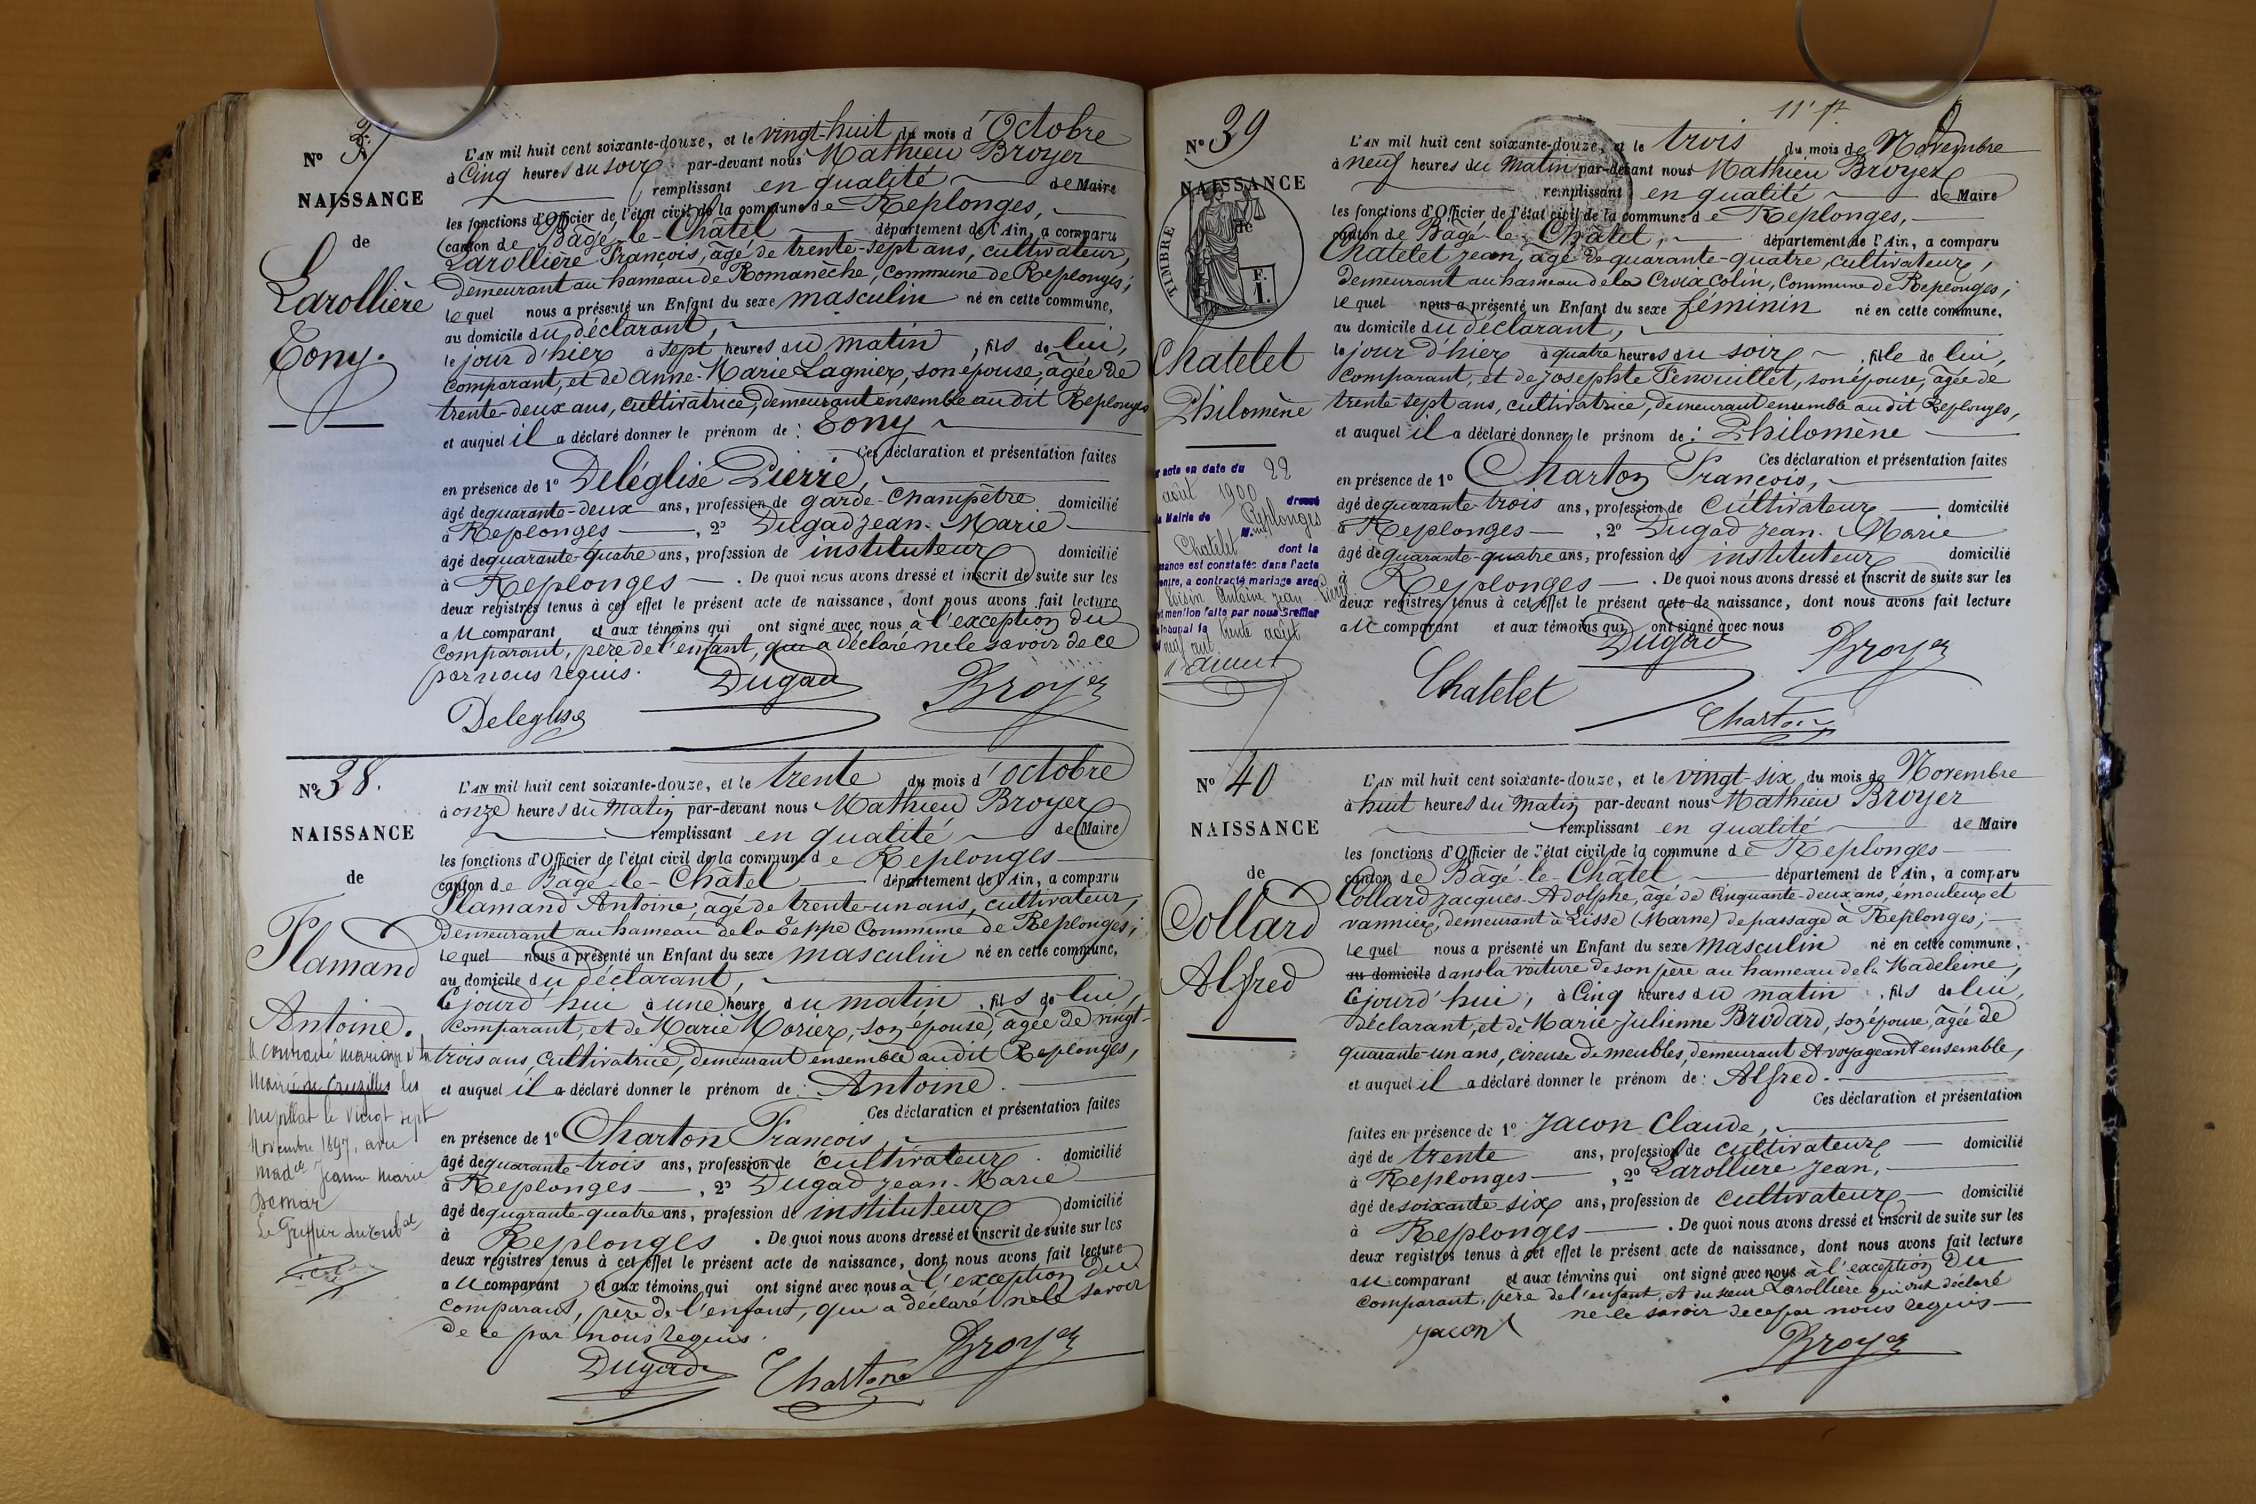 N° 37
NAISSANCE
de
Larollière
Tony.
L'AN mil huit cent soixante-douze, et le vingt-huit du mois d'Octobre
à Cinq heures du soir par-devant nous Mathieu Broyer
remplissant en qualité de Maire
les fonctions d'Officier de l'état civil de la commune de Replonges,
canton de Bâgé-le-Châtel département de l'Ain, a comparu
Larollière François, âgé de trente-sept ans, cultivateur,
demeurant au hameau de Romanèche, commune de Replonges;
lequel nous a présenté un Enfant du sexe masculin né en cette commune,
au domicile du déclarant,
le jour d'hier à sept heures du matin, fils de lui,
comparant, et de Anne-Marie Lagnier, son épouse, âgée de
trente-deux ans, cultivatrice, demeurant ensemble au dit Replonges
et auquel il a déclaré donner le prénom de : Tony
Ces déclaration et présentation faites
en présence de 1° Deléglise Pierre,
âgé de quarante-deux ans, profession de garde-Champêtre domicilié
à Replonges, 2° Dugad Jean-Marie
âgé de quarante-quatre ans, profession de instituteur domicilié
à Replonges. De quoi nous avons dressé et inscrit de suite sur les
deux registres tenus à cet effet le présent acte de naissance, dont nous avons fait lecture
au comparant et aux témoins qui ont signé avec nous à l'exception du
comparant, père de l'enfant, qui a déclaré ne le savoir de ce
par nous requis.
Dugad Broyer
Deleglise
N° 38.
NAISSANCE
de
Flamand
Antoine.
A contracté mariage à la
Mairie de Cruzilles les
Mépillat le vingt sept
Novembre 1897, avec
Madelle Jeanne Marie
Demar
Le Greffier du Tribal
L'AN mil huit cent soixante-douze, et le trente du mois d'octobre
à onze heures du Matin par-devant nous Mathieu Broyer
remplissant en qualité de Maire
les fonctions d'Officier de l'état civil de la commune de Replonges
canton de Bâgé-le-Châtel département de l'Ain, a comparu
Flamand Antoine, âgé de trente-un ans, cultivateur,
demeurant au hameau de la Teppe Commune de Replonges;
lequel nous a présenté un Enfant du sexe masculin né en cette commune,
au domicile du déclarant,
Cejourd'hui à une heure du matin, fils de lui,
comparant, et de Marie Morier, son épouse, âgée de vingt-
trois ans, cultivatrice, demeurant ensemble au dit Replonges,
et auquel il a déclaré donner le prénom de : Antoine.
Ces déclaration et présentation faites
en présence de 1° Charton François,
âgé de quarante-trois ans, profession de cultivateur domicilié
à Replonges, 2° Dugad Jean-Marie
âgé de quarante-quatre ans, profession de instituteur domicilié
à Replonges. De quoi nous avons dressé et inscrit de suite sur les
deux registres tenus à cet effet le présent acte de naissance, dont nous avons fait lecture
au comparant et aux témoins qui ont signé avec nous à l'exception du
comparant, père de l'enfant, qui a déclaré ne le savoir
de ce par nous requis.
Dugad Charton Broyer
11e ft
N° 39
NAISSANCE
de
TIMBRE
F.
1.
Chatelet
Philomène
r acte en date du 22
août 1900 dressé
la Mairie de Replonges
Melle
Chatelet dont la
ssance est constatée dans l'acte
contre, a contracté mariage avec
Loisin Antoine Jean Pierre
nt mention faite par nous Greffier
ribunal le trente août
neuf cent
L'AN mil huit cent soixante-douze, et le trois du mois de Novembre
à neuf heures du Matin par-devant nous Mathieu Broyer
remplissant en qualité de Maire
les fonctions d'Officier de l'état civil de la commune de Replonges,
canton de Bâgé-le-Châtel, département de l'Ain, a comparu
Chatelet Jean, âgé de quarante-quatre, cultivateur,
demeurant au hameau de la Croix Colin, Commune de Replonges;
lequel nous a présenté un Enfant du sexe féminin né en cette commune,
au domicile du déclarant,
le jour d'hier à quatre heures du soir, fille de lui,
comparant, et de Josephte Penouillet, son épouse, âgée de
trente-sept ans, cultivatrice, demeurant ensemble au dit Replonges,
et auquel il a déclaré donner le prénom de : Philomène
Ces déclaration et présentation faites
en présence de 1° Charton François,
âgé de quarante-trois ans, profession de cultivateur domicilié
à Replonges, 2° Dugad Jean-Marie
âgé de quarante-quatre ans, profession de instituteur domicilié
à Replonges. De quoi nous avons dressé et inscrit de suite sur les
deux registres tenus à cet effet le présent acte de naissance, dont nous avons fait lecture
au comparant et aux témoins qui ont signé avec nous
Dugad Broyer
Chatelet
Charton
N° 40
NAISSANCE
de
Collard
Alfred
L'AN mil huit cent soixante-douze, et le vingt-six du mois de Novembre
à huit heures du Matin par-devant nous Mathieu Broyer
remplissant en qualité de Maire
les fonctions d'Officier de l'état civil de la commune de Replonges
canton de Bâgé-le-Châtel département de l'Ain, a comparu
Collard Jacques-Adolphe, âgé de Cinquante-deux ans, émouleur et
vannier, demeurant à Lisse (Marne) de passage à Replonges;
lequel nous a présenté un Enfant du sexe masculin né en cette commune,
au domicile dans la voiture de son père au hameau de la Madeleine,
Cejourd'hui, à Cinq heures du matin, fils de lui,
déclarant, et de Marie-Julienne Brodard, son épouse, âgée de
quarante-un ans, cireuse de meubles, demeurant et voyageant ensemble,
et auquel il a déclaré donner le prénom de : Alfred.
Ces déclaration et présentation
faites en présence de 1° Jacon Claude,
âgé de trente ans, profession de cultivateur domicilié
à Replonges, 2° Larollière Jean,
âgé de soixante-six ans, profession de cultivateur domicilié
à Replonges. De quoi nous avons dressé et inscrit de suite sur les
deux registres tenus à cet effet le présent acte de naissance, dont nous avons fait lecture
au comparant et aux témoins qui ont signé avec nous à l'exception du
comparant, père de l'enfant, et du sieur Larollière qui ont déclaré
ne le savoir de ce par nous requis
Jacon Broyer